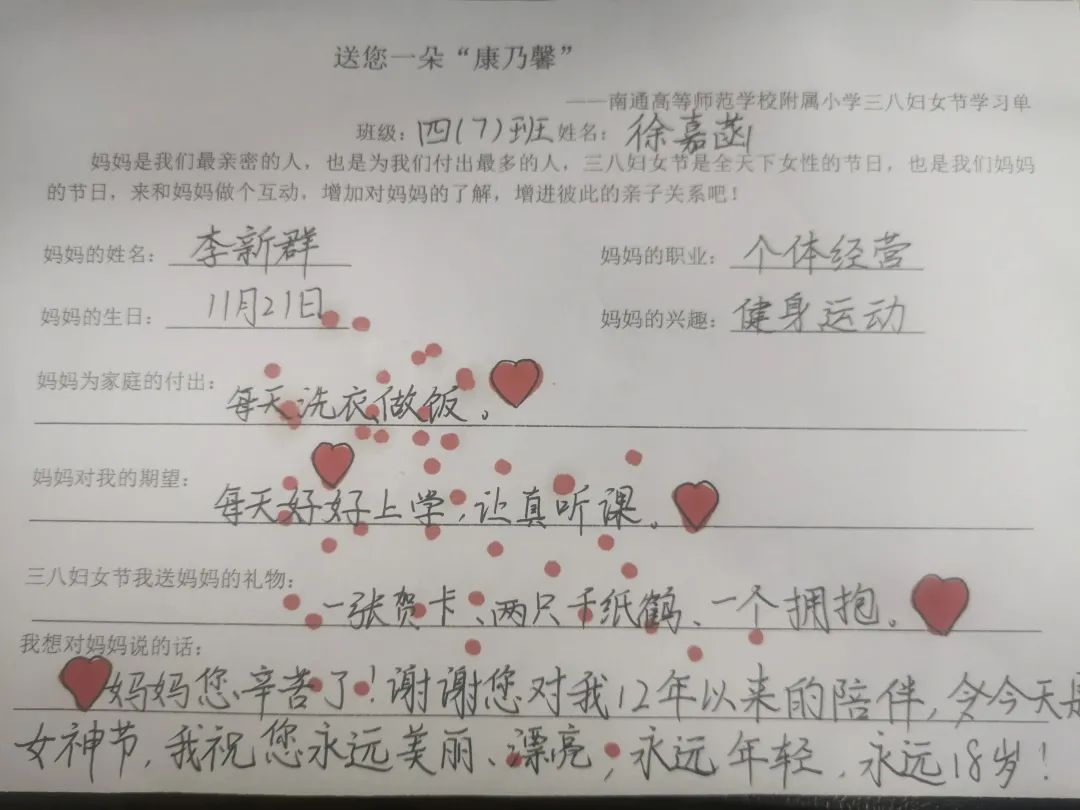 送您一朵“康乃馨”
——南通高等师范学校附属小学三八妇女节学习单
班级：四(7)班 姓名：徐嘉菡
妈妈是我们最亲密的人，也是为我们付出最多的人，三八妇女节是全天下女性的节日，也是我们妈妈
的节日，来和妈妈做个互动，增加对妈妈的了解，增进彼此的亲子关系吧！
妈妈的姓名：李新群 妈妈的职业：个体经营
妈妈的生日：11月21日 妈妈的兴趣：健身运动
妈妈为家庭的付出：
每天洗衣做饭。
妈妈对我的期望：
每天好好上学，让真听课。
三八妇女节我送妈妈的礼物：
一张贺卡、两只千纸鹤、一个拥抱。
我想对妈妈说的话：
妈妈您辛苦了！谢谢您对我12年以来的陪伴，今天是
女神节，我祝您永远美丽、漂亮，永远年轻，永远18岁！